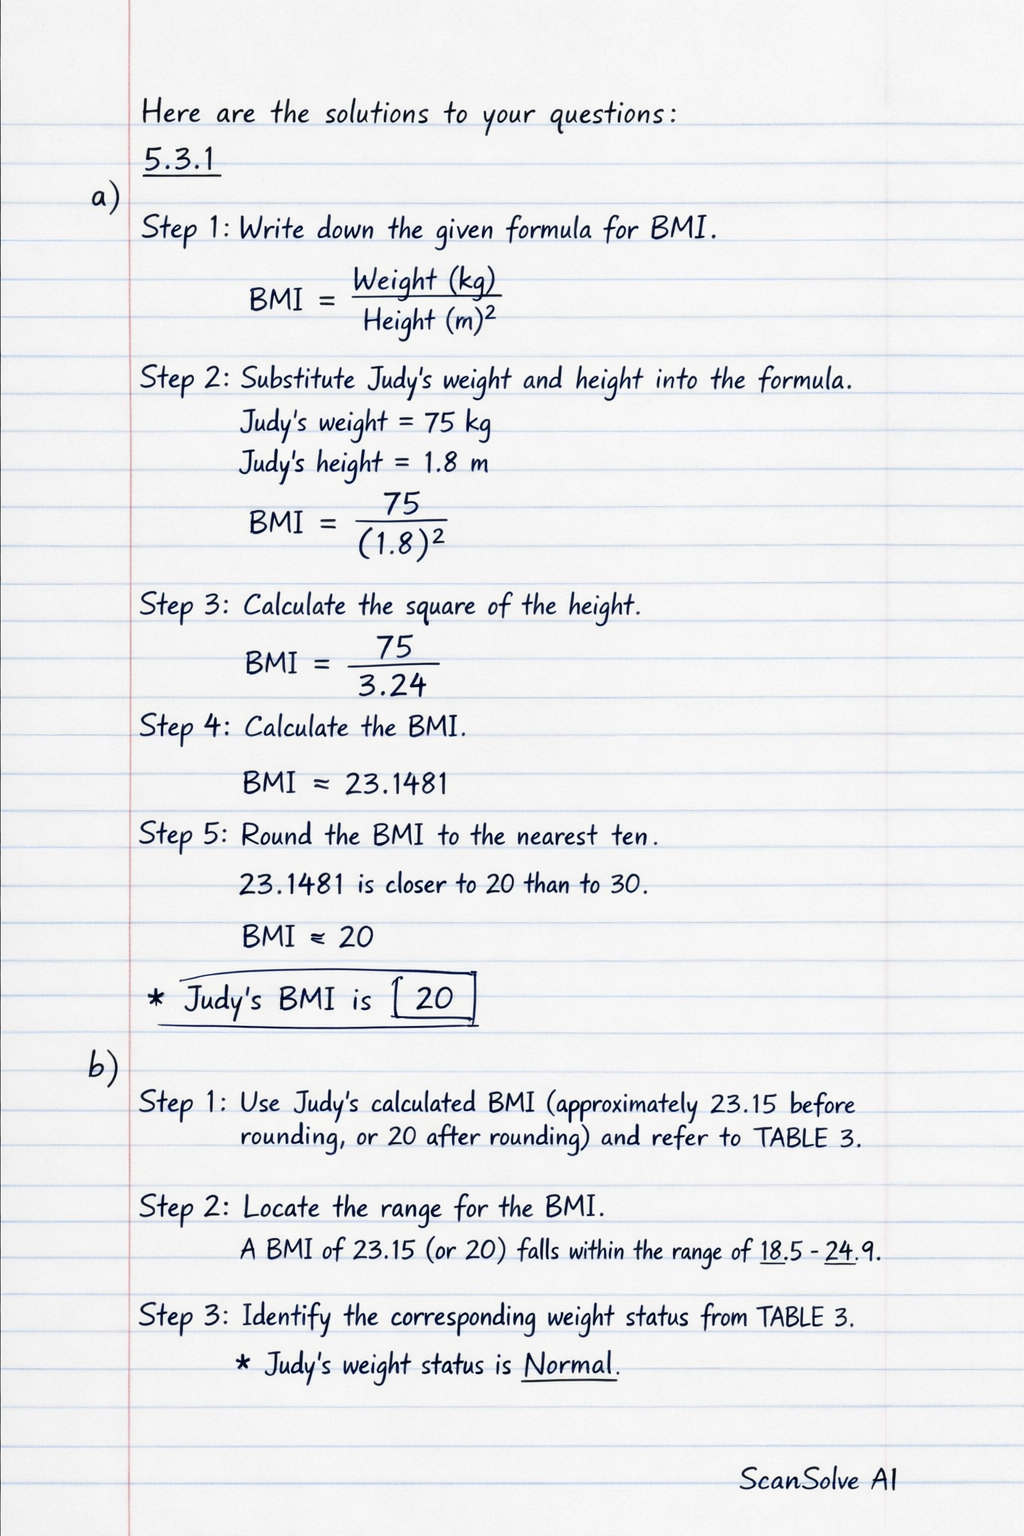 Here are the solutions to your questions:
5.3.1
a)
Step 1: Write down the given formula for BMI.
BMI = Weight (kg) / Height (m)²
Step 2: Substitute Judy's weight and height into the formula.
Judy's weight = 75 kg
Judy's height = 1.8 m
BMI = 75 / (1.8)²
Step 3: Calculate the square of the height.
BMI = 75 / 3.24
Step 4: Calculate the BMI.
BMI ≈ 23.1481
Step 5: Round the BMI to the nearest ten.
23.1481 is closer to 20 than to 30.
BMI ≈ 20
* Judy's BMI is 20
b)
Step 1: Use Judy's calculated BMI (approximately 23.15 before
rounding, or 20 after rounding) and refer to TABLE 3.
Step 2: Locate the range for the BMI.
A BMI of 23.15 (or 20) falls within the range of 18.5 - 24.9.
Step 3: Identify the corresponding weight status from TABLE 3.
* Judy's weight status is Normal.
ScanSolve AI